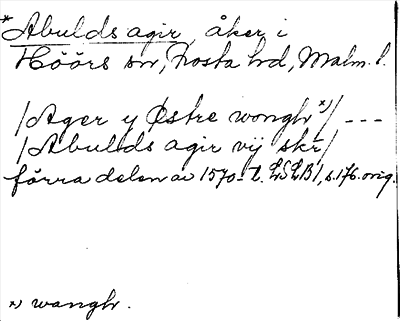 *Abulds agir, åker i
Höörs sn, Frosta hd, Malm. l.
/Ager y Østre wonghr *)/ ---
/Abulds agir vij skr/
förra delen av 1570-t. LSLB 1, s. 176. orig.
*) wanghr.